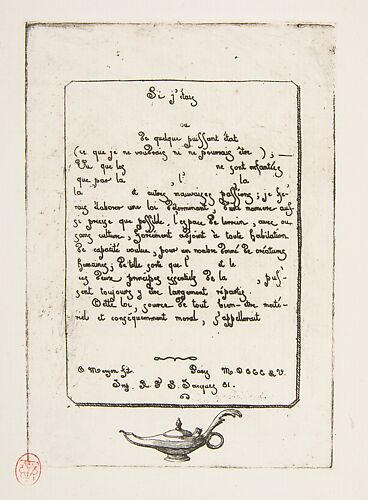 Si j'étais
ou
De quelque puissant état
(ce que je ne voudrais ni ne pourrais être);—
Vu que les ne sont enfantées
que par la , l' la
la & autres mauvaises passions; je fe-
rais élaborer une loi déterminant d'une manière aus-
si precise que possible l'espace de terrain, avec ou
sans culture, forcément adjoint à toute habitation
de capacité voulue, pour un nombre donné de créatures
humaines; de telle sorte que l' & le
ces deux principes essentiels de la , puf-
sent toujours y être largement répartis.
Cette loi, source de tout bien-être maté-
riel et conséquemment moral, s'appellerait
C. Meryon fit Paris
Imp. R. S. Jacques